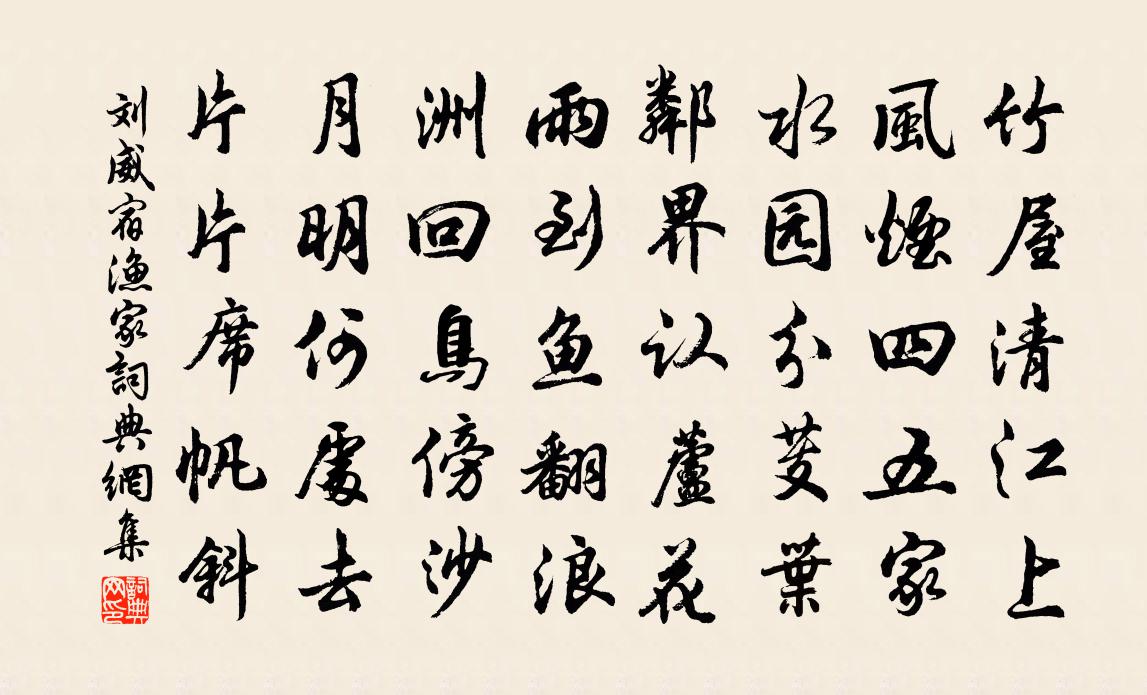 竹屋清江上
風煙四五家
水园分芰葉
鄰界认蘆花
雨到魚翻浪
洲回鳥傍沙
月明何處去
片片席帆斜
刘威宿漁家詞典網集
詞典网印